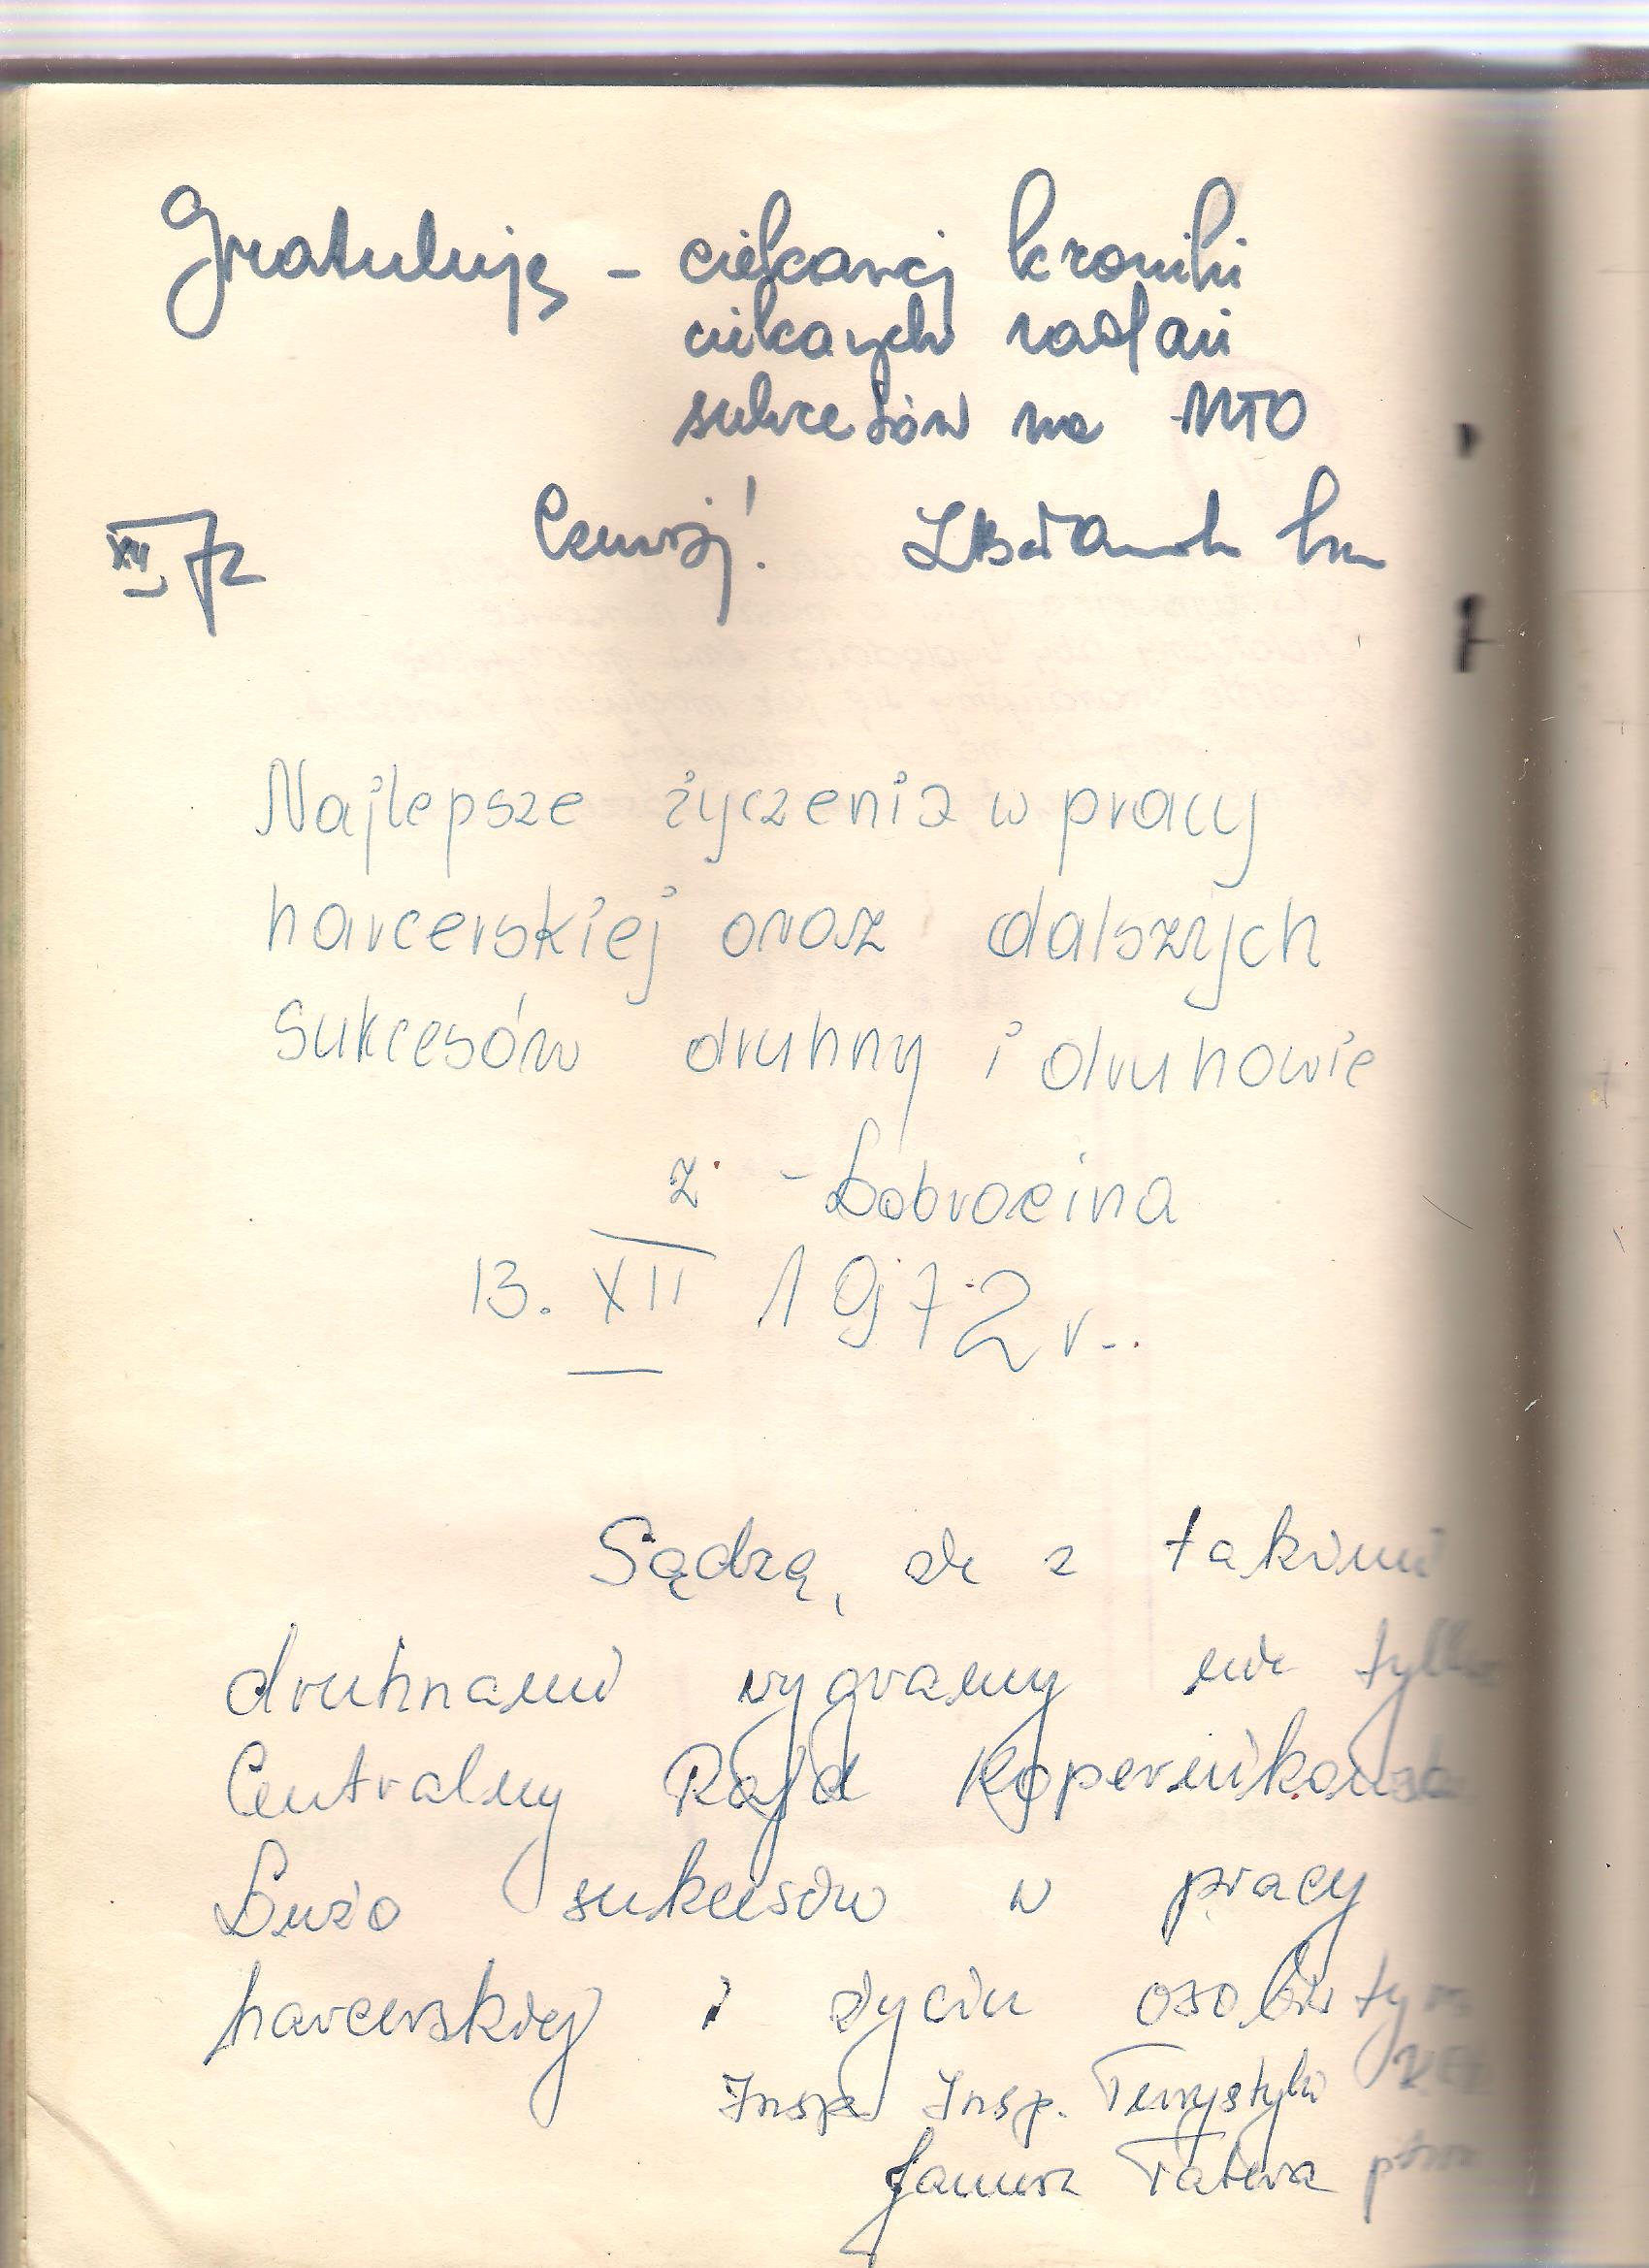 Gratuluję - ciekawej kroniki
ciekawych zadań
sukcesów na MTO
XII 72 Czuwaj!
Najlepsze życzenia w pracy
harcerskiej oraz dalszych
Sukcesów druhny i druhowie
z - Dobrocina
13. XII 1972 r.
Sądzę, że z takimi
druhnami wygramy nie tylko
Centralny Rajd
Dużo sukcesów w pracy
harcerskiej i życiu osobistym
Insp. Insp. Turystyki
Janusz Tatera